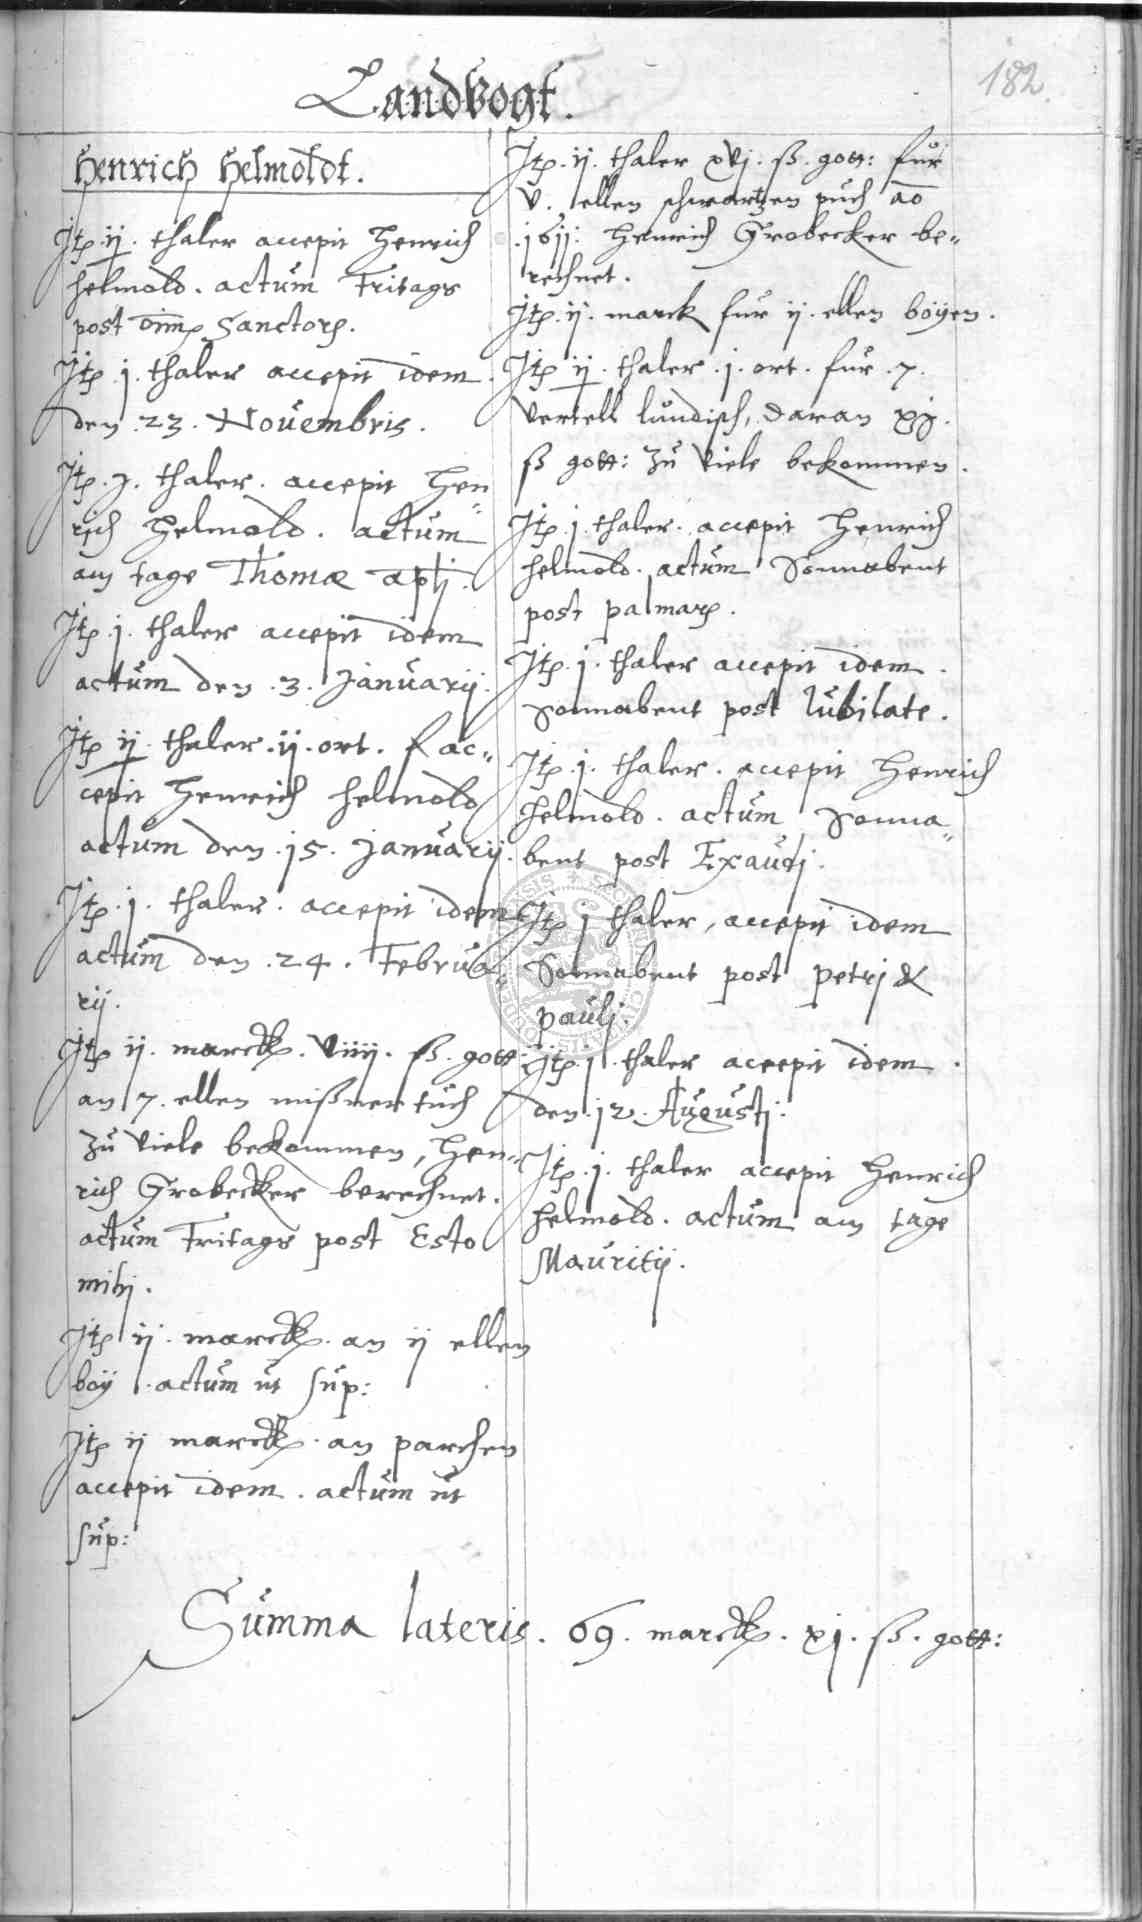 182.
Landvogt.
Henrich Helmoldt.
Itp. ij. thaler accepit Henrich
Helmold. actum Fritags
post omp Sanctorp.
Itp. j. thaler accepit idem
den 23. Novembris.
Itp. j. thaler. accepit Hen„
rich Helmold. actum
am tage Thomæ apli.
Itp. j. thaler accepit idem
actum den .3. Januarij.
Itp ij. thaler .ij. ort. f ac„
cepit Henrich Helmold
actum den .15. Januarij.
Itp. j. thaler. accepit idem
actum den .24. Februa„
rij.
Itp ij. marck. viiij. ß. gott:
an 7. ellen mißner tuch
zu viele bekommen, Hen„
rich Grobecker berechnet.
actum Fritags post Esto
mihj.
Itp ij. marck. an ij ellen
boÿ . actum ut sup:
Itp ij marck. an parchen
accepit idem . actum ut
sup:
Itp. ij. thaler xvj. ß. gott: fur
v. ellen schwartzen puch ao
.1611: Henrich Grobecker be„
rechnet.
Itp. ij. marck fur ij. ellen boÿen.
Itp ij. thaler .j. ort. fur .7.
vertell lundisch, daran xj.
ß gott: zu viele bekommen.
Itp. j. thaler. accepit Henrich
Helmold. actum Sonnabent
post palmarp.
Itp. j. thaler accepit idem.
Sonnabent post Iubilate.
Itp. j. thaler. accepit Henrich
Helmold. actum Sonna„
bent post Exaudj.
Itp j thaler, accepit idem
Sonnabent post Petrj &
Paulj.
Itp. j. thaler accepit idem.
den .12. Augustj.
Itp. j. thaler accepit Henrich
Helmold. actum am tage
Mauritij.
Summa lateris. 69. marck. xj. ß. gott: